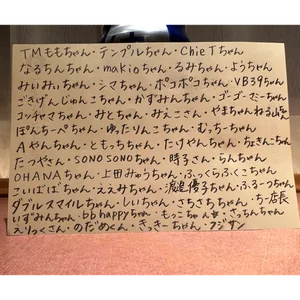 TMももちゃん・テンプルちゃん・ChieTちゃん
なるちんちゃん・makioちゃん・るみちゃん・ようちゃん
みぃみぃちゃん・シマちゃん・ポコポコちゃん・VB39ちゃん
ごきげんじゅんこちゃん・かずみんちゃん・ゴーゴーまだーちゃん
コッチャマちゃん・みとちゃん・みえこさん・やまちゃん
ぽんちーぺちゃん・ゆったりんこちゃん・むっちーちゃん
Aやんちゃん・ともっちちゃん・たけやんちゃん・ちょきんこちゃん
たつやさん・SONOSONOちゃん・時子さん・らんちゃん
OHANAちゃん・上田みゅうちゃん・ふっくらふくこちゃん
こいばばちゃん・ええみちゃん・渡邉優子ちゃん・ふるーつちゃん
ダブルスマイルちゃん・しいちゃん・さちさちちゃん・ちー店長
いずみんちゃん・bbhappyちゃん・もっこちゃん・さっちんちゃん
えりっくさん・のだめくん・きっきーちゃん・フジサン